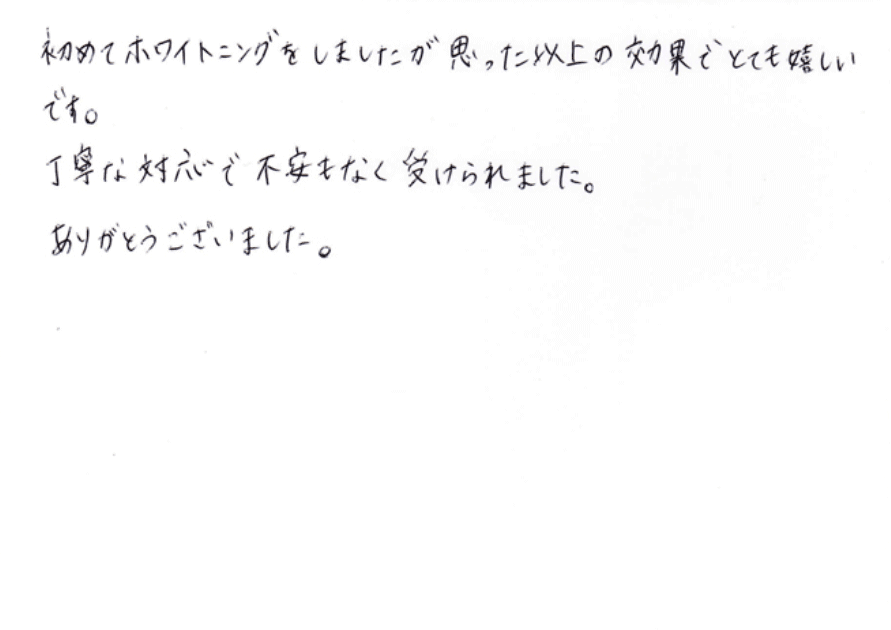 初めてホワイトニングをしましたが思った以上の効果でとても嬉しい
です。
丁寧な対応で不安もなく受けられました。
ありがとうございました。